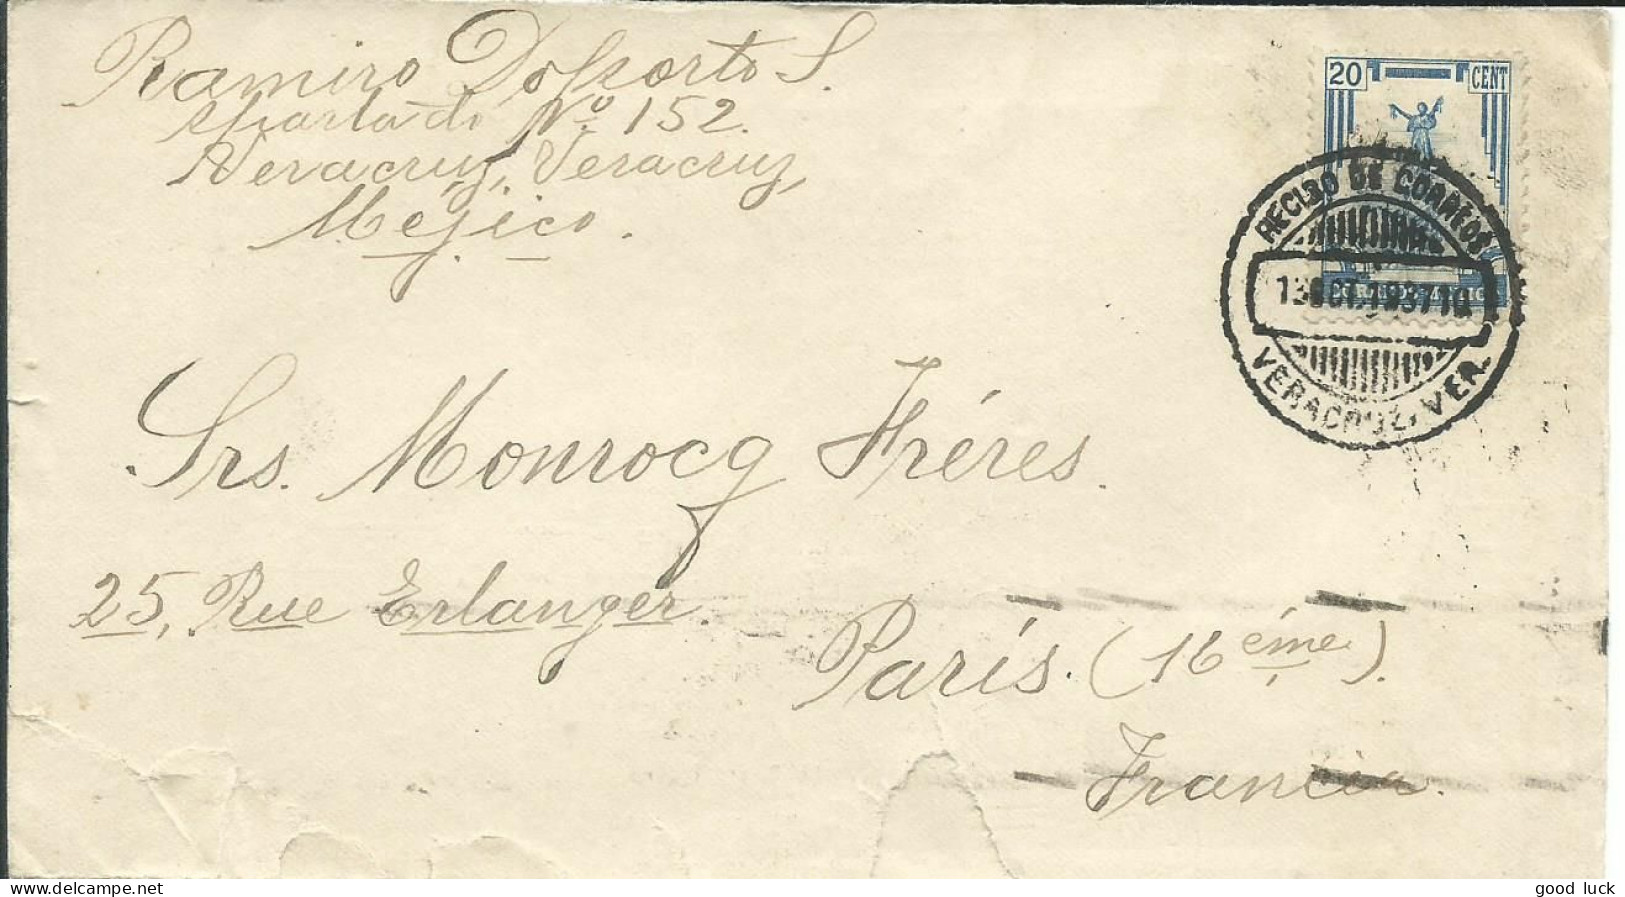 Ramiro Dosporto S.
Apartado No. 152.
Veracruz, Veracruz,
Méjico.
20 CENT
RECIBO DE CORREOS
13 OCT. 1937 10
VERACRUZ, VER.
Srs. Monrocq Fréres.
25, Rue Erlanger.
París. (16 éme).
Francia.
good luck